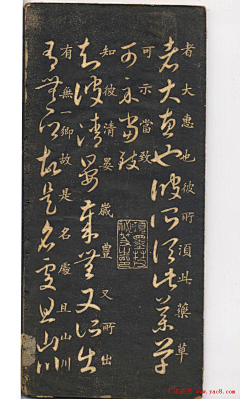 者大惠也彼所須此藥草
者大惠也彼所須此藥草
可示當致
可示當致
知彼清晏歲豐又所出
知彼清晏歲豐又所出
有無一鄉故是名處且山川
有無一鄉故是名處且山川
www.yac8.com